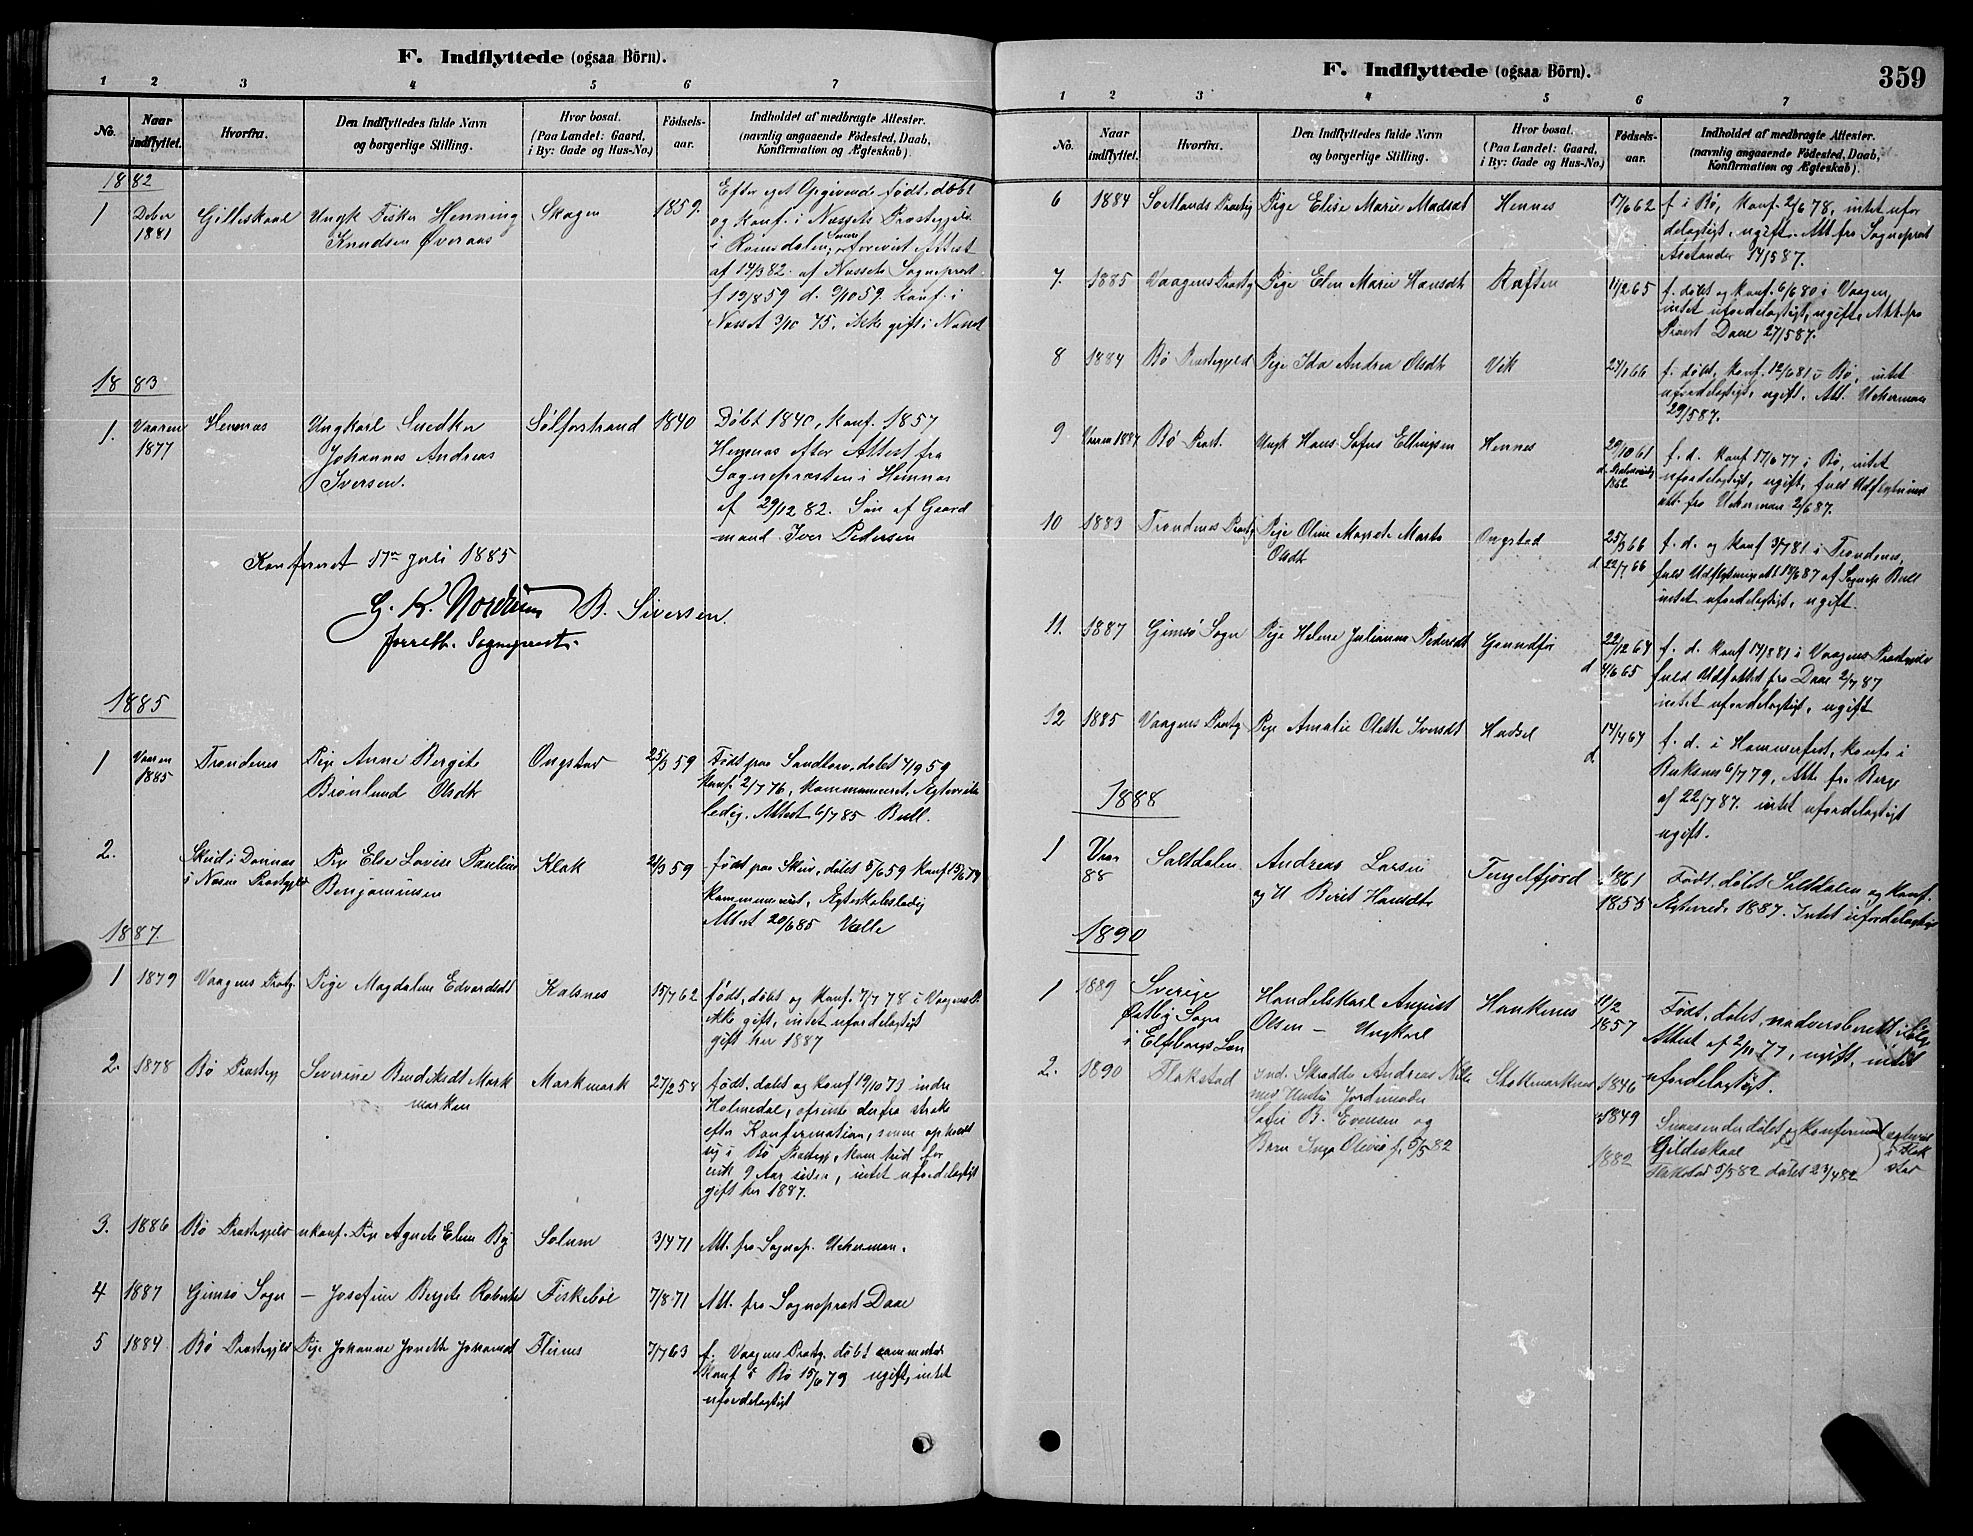 F. Indflyttede (ogsaa Börn).
1 2 3 4 5 6 7
No.
Naar indflyttet.
Hvorfra.
Den Indflyttedes fulde Navn
og borgerlige Stilling.
Hvor bosat.
(Paa Landet: Gaard,
i By: Gade og Hus-No.)
Födsels-
aar.
Indholdet af medbragte Attester.
(navnlig angaaende Födested, Daab,
Konfirmation og Ægteskab).
1882
1 Debr 1881 Gilleskaal Ungk Fisker Henning Skogen 1859.
Knudsen Øveraas
Efter eget Opgivende født, døbt
og konf. i Næssets Præstegjeld
i Romsdalen, forevist Attest
af 14/3 82. af Næssets Sognepræst.
f 19/8 59 d. 9/10 59. Konf. i
Næsset 3/10 75. Ikke gift i Næsset
1883
1. Vaaren 1877 Hemnæs Ungkarl Snedker Sølferstrand 1840
Johannes Andreas
Iversen.
Døbt 1840, konf. 1857
Hemnæs efter Attest fra
Sognepræsten i Hemnæs
af 29/12 82. Søn af Gaard
mand Iver Pedersen
Konfereret 17de Juli 1885
G. K. Nordrum B. Sivertsen.
forrett. Sognepræst.
1885
1 Vaaren 1885 Trondenes Pige Anne Bergite Ongstad 25/3 59
Brönlund Olsdtr
Født paa Sandtorv, døbt 4/9 59
Konf. 2/7 76, kommuniceret, Ægteskabs
ledig. Attest 6/7 85 Bull.
2. Skeid i Dønnes Pige Else Lovise Pauline Klak 2/3 59
i Nesne Præstegjeld Benjaminsen
født paa Skeid, døbt 5/6 59 Konf 15/6 74
kommuniceret, Ægteskabsledig
Attest 20/6 85 Valle
1887
1 1879 Vaagens Prstg. Pige Magdalene Edvardsdt Kalsnes 15/7 62
født, døbt og konf. 7/7 78 i Vaagens P.
ikke gift, intet ufordelagtigt
gift her 1887
2. 1878 Bø Præstegj Severine Bendiksdt Mark Markmark 27/2 58
marken
født, døbt og konf 19/10 73 indre
Holmedal, ofreiste derfra strax
efter Konfirmation, senere opholdt
sig i Bø Præstegj, kom hid for
circ 9 Aar siden, intet ufordelagtigt
gift her 1887.
3. 1886 Bø Præstegjeld ukonf. Pige Agnete Elene By Solum 3/4 71 Att. fra Sognep. Uckerman.
4 1887 Gimsø Sogn — Josefine Bergite Roberts Fiskebøl 7/8 71 Att. fra Sognepræst Daae
5 1884 Bø Præstegjeld Pige Johanne Jonette Johansdt Flesnes 7/7 63
f. Vaagens Præstg. døbt sammesteds
Konf i Bø 15/6 79 ugift, intet
ufordelagtigt
F. Indflyttede (ogsaa Börn).
359
1 2 3 4 5 6 7
No.
Naar
indflyttet.
Hvorfra.
Den Indflyttedes fulde Navn
og borgerlige Stilling.
Hvor bosat.
(Paa Landet: Gaard,
i By: Gade og Hus-No.)
Födsels-
aar.
Indholdet af medbragte Attester.
(navnlig angaaende Födested, Daab,
Konfirmation og Ægteskab).
6 1884 Sortlands Præstg Pige Elise Marie Madsdt Hennes 17/6 62
f. i Bø, konf 2/6 78, intet ufor
delagtigt, ugift. Att fra Sognepræst
14/5 87.
7. 1885 Vaagens Præstg Pige Elen Marie Hansdt Raften 11/2 65
f. døbt og konf. 6/6 80 i Vaagen,
intet ufordelagtigt, ugift, Att. fra
Præst Daae 27/5 87.
8 1884 Bø Præstegjeld Pige Ida Andrea Olsdt Vik 24/1 66
f. døbt, konf. 12/6 81 i Bø, intet
ufordelagtigt, ugift. Att. Uckerman
29/5 87.
9 Vaaren 1887 Bø Præst. Ungk Hans Sofus Ellingsen Hennes 29/10 61
1862
f. d. konf 17/6 77 i Bø, intet
ufordelagtigt, ugift, fuld Udflytnings
att. fra Uckerman 2/6 87.
10 1883 Trondenes Præstg Pige Oline Magrete Marta Ongstad 25/3 66
Olsdt d 22/7 66
f. d. og konf 3/7 81 i Trondenes,
fuld Udflytningsatt 12/6 87 af Sognep Bull
intet ufordelagtigt, ugift.
11. 1887 Gimsø Sogn Pige Helene Julianna Pedersdt Grundfør 22/12 64
d 4/6 65
f. d. konf 14/8 81 i Vaagens Præstegjeld
fuld Udfattest fra Daae 2/7 87
intet ufordelagtigt, ugift
12 1885 Vaagens Præstg. Pige Amalie Olette Iversdt Hadsel 14/4 64
d
f. d. i Hammerfest, konf. i
Buksnes 6/7 79, Att. fra Berge
af 22/7 87. intet ufordelagtigt
ugift.
1888
1 Vaar 88 Saltdalen Andreas Larsen Tengelfjord 1861
og H. Berit Hansdtr 1855
Født, døbt Saltdalen og konf.
Ægtevied 1887. Intet ufordelagtigt
1890
1 1889 Sverige Handelskarl August Hankenes 11/2
Østby Sogn Olsen — Ungkarl 1857
i Elfsborgs Län
Født, døbt, nadverberett.
Attest af 2/11 77, ugift, intet
ufordelagtigt.
2. 1890 Flakstad Skrædder Andreas Nils Stokmarknes 1846
med Hustru Jordmoder
Sofie B. Evensen og 1849
Barn Inga Olivie f. 5/5 82 1882
døbt og konfirmeret
Gildeskaal
Flakstad 5/3 82 døbt 23/4 82